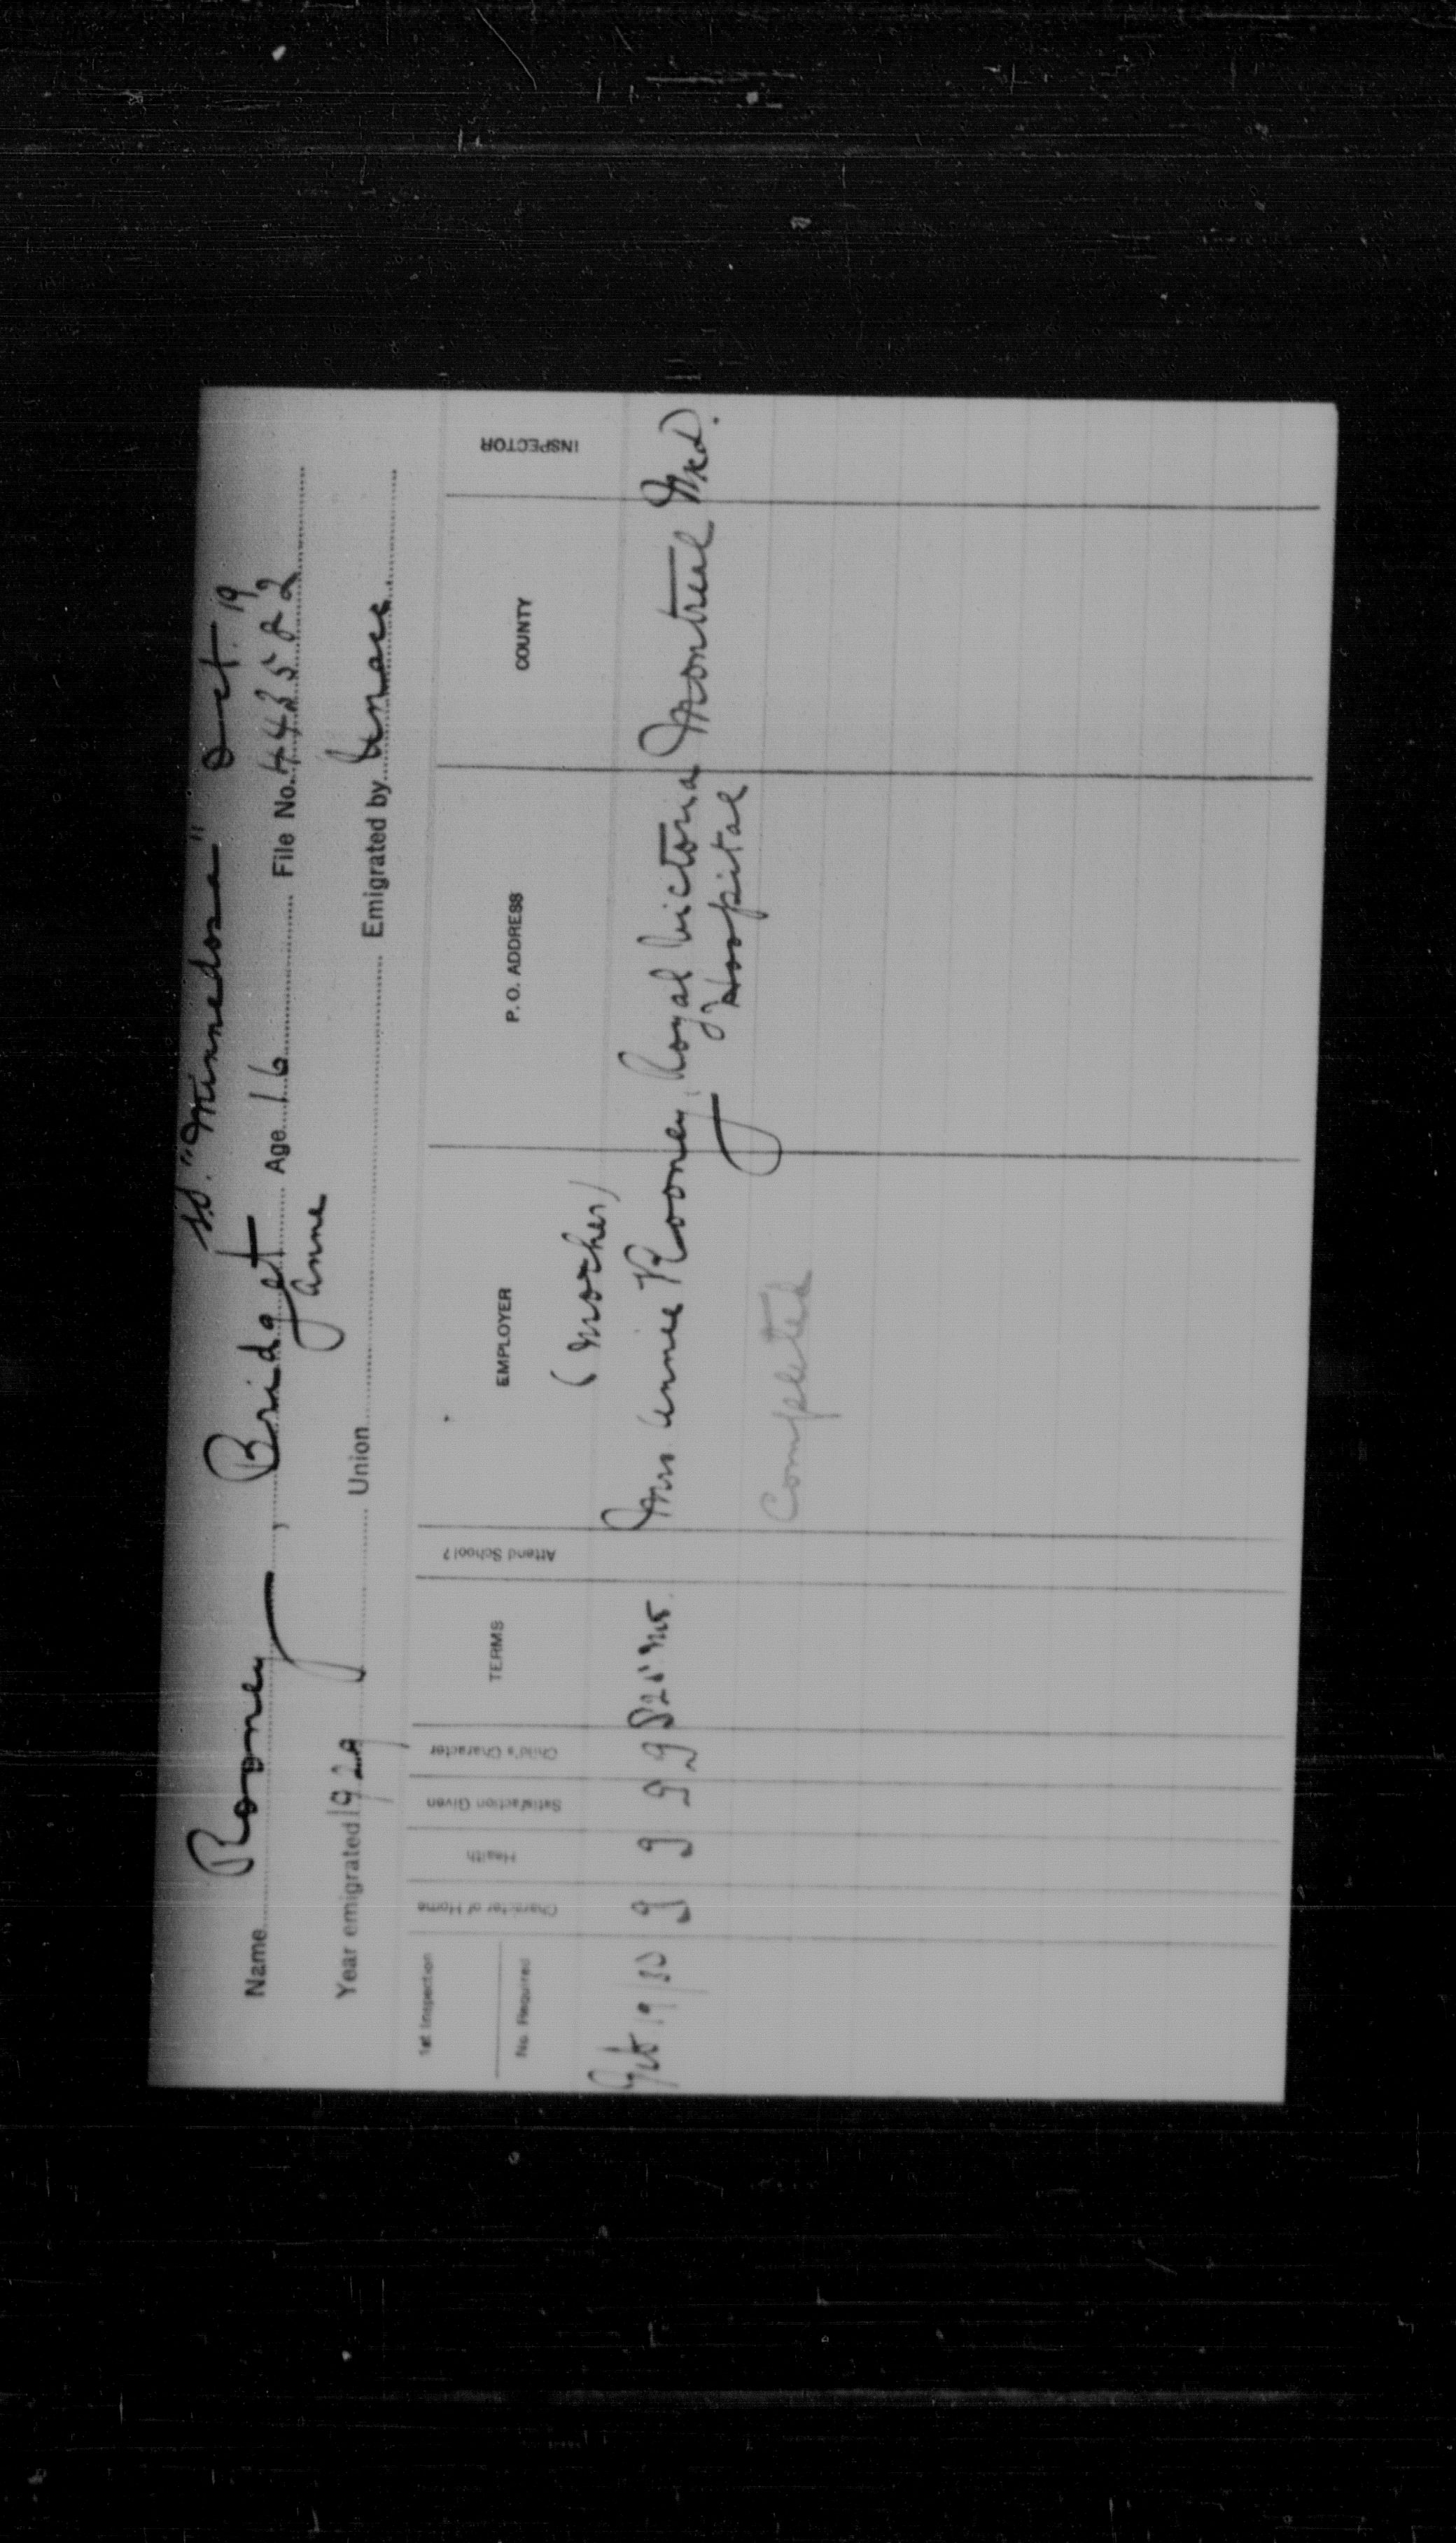 SS. "Minnedosa" Oct. 19
Name Rooney, Bridget Age 16 File No. 443582
Anne
Year emigrated 1929 Union Emigrated by
1st Inspection
No. Required
Character of Home Health Satisfaction Given Child's Character TERMS Attend School? EMPLOYER P. O. ADDRESS COUNTY INSPECTOR
(Mother)
Feb 19/30 g g g g $25 Mo. Mrs Annie Rooney, Royal Victoria Montreal
Hospital
Completed